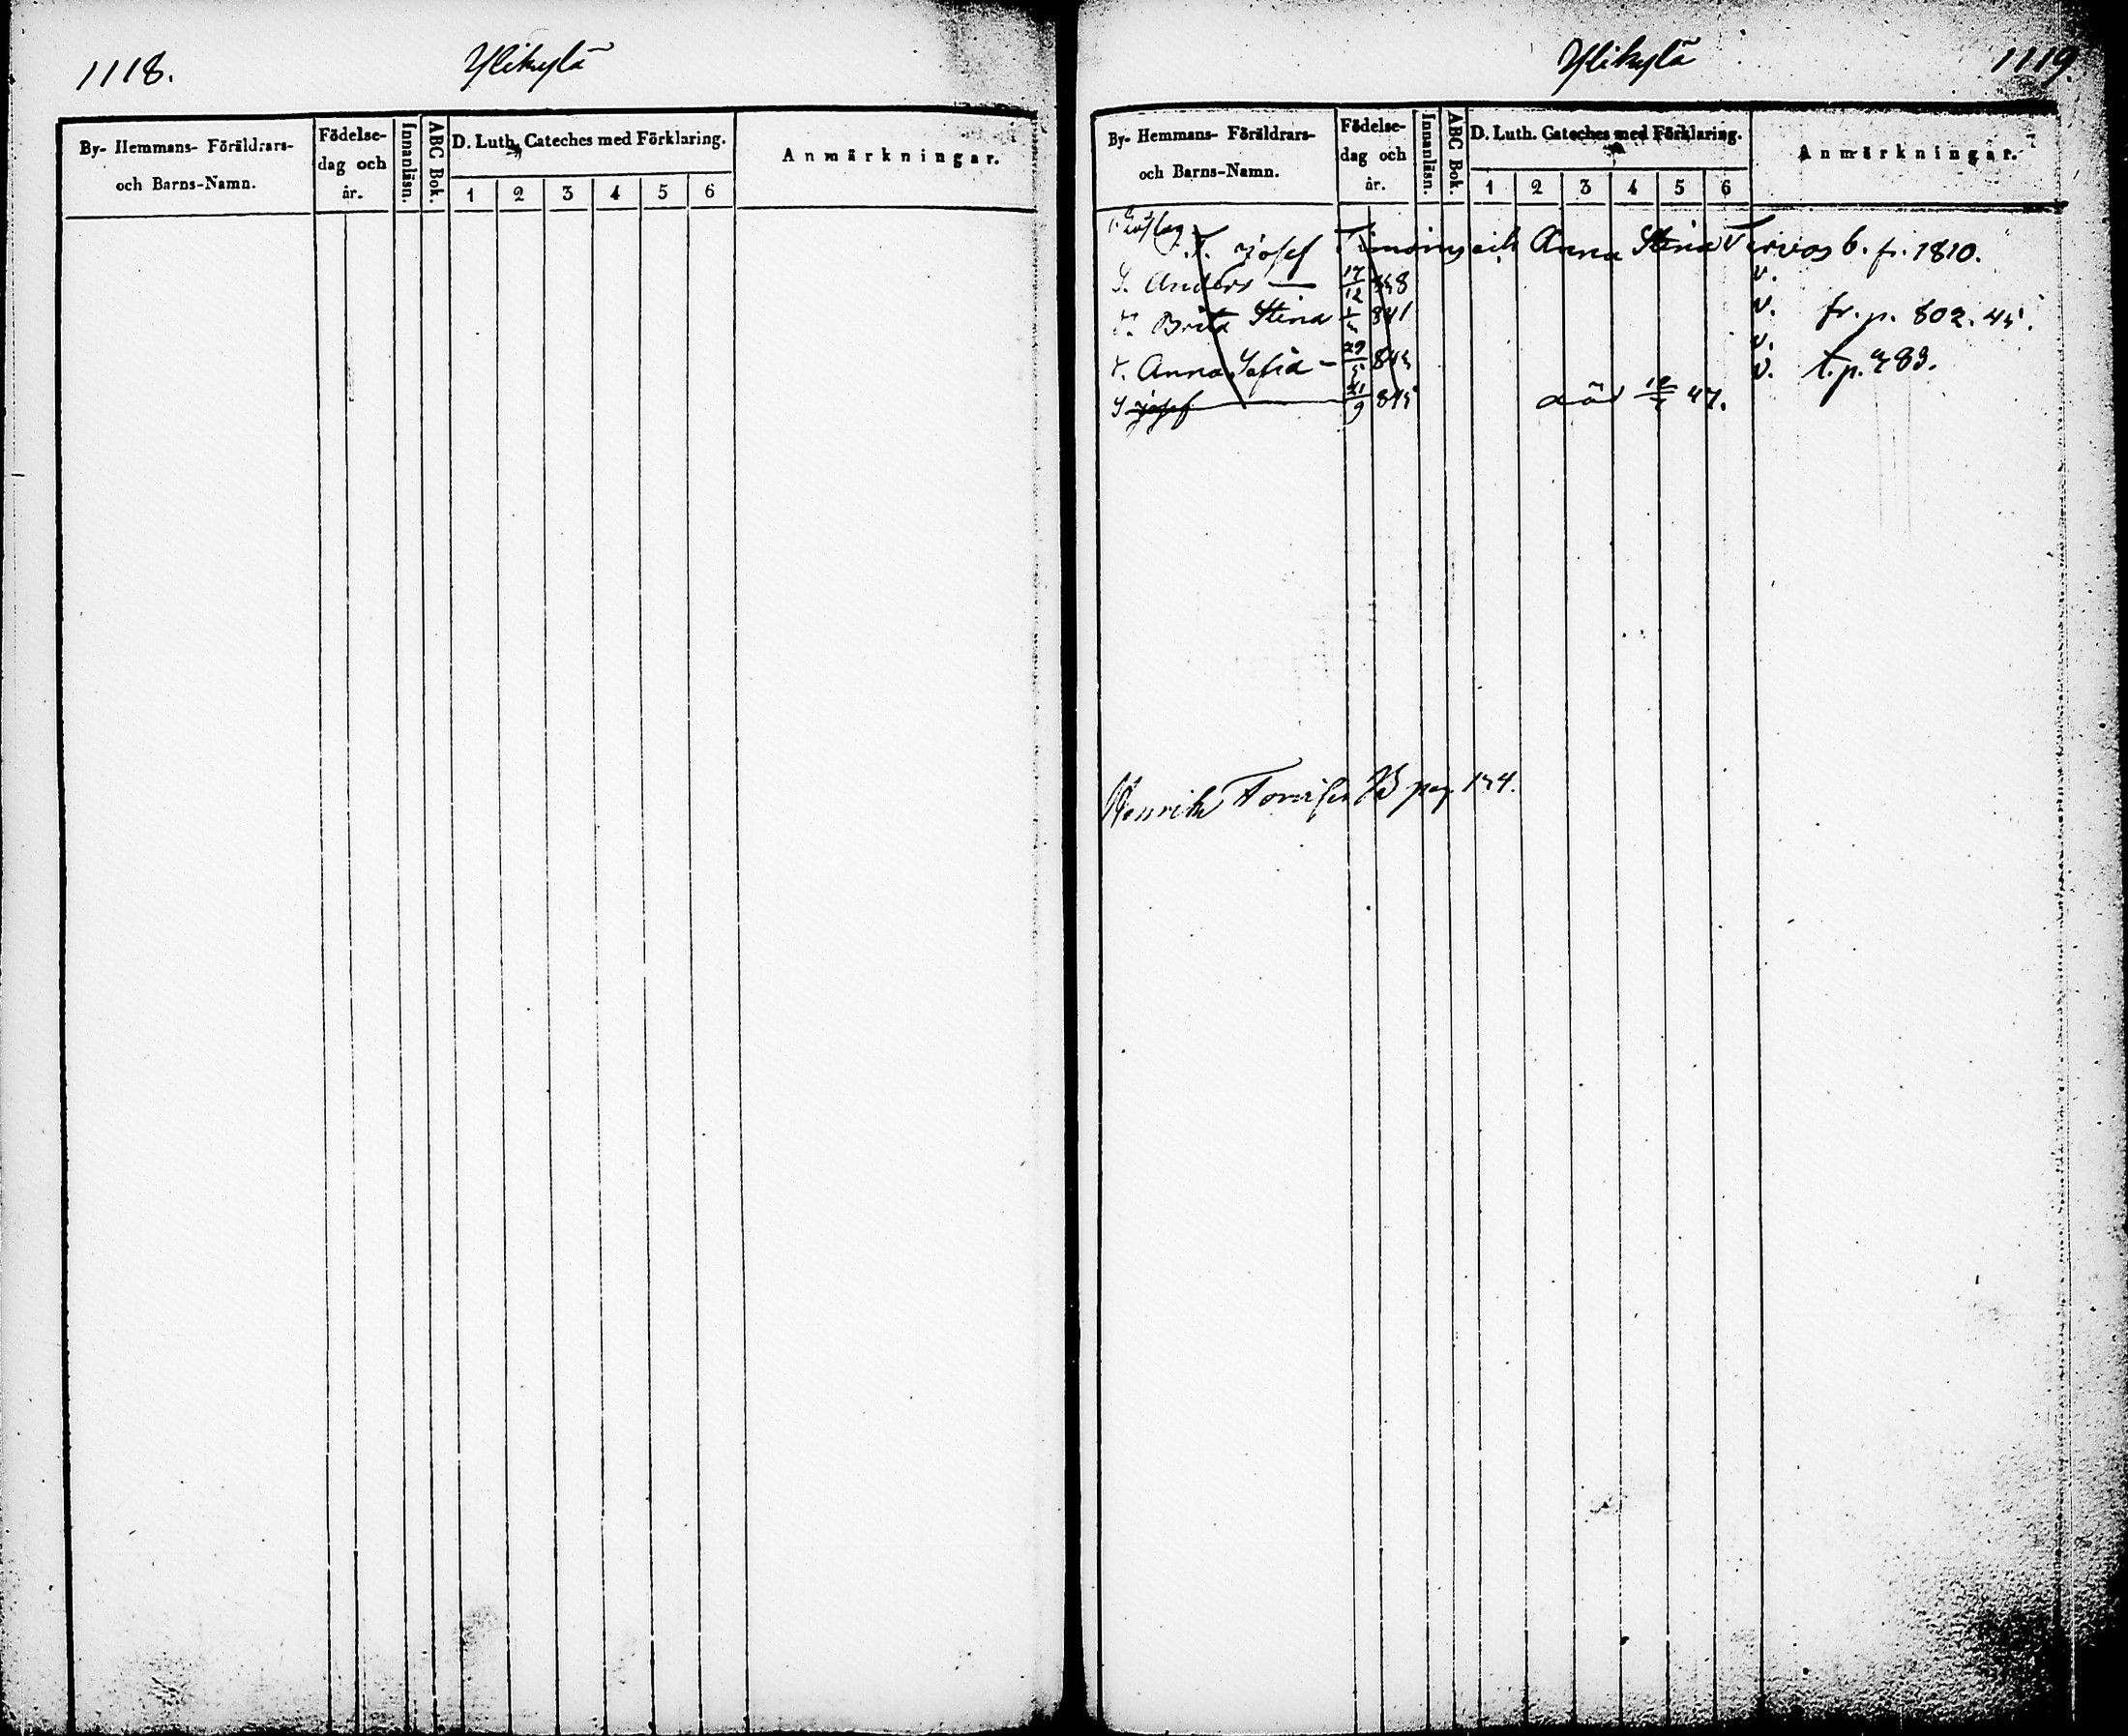 1118.
Ylikylä
By- Hemmans- Föräldrars-
och Barns-Namn.
Födelse-
dag och
år.
Innanläsn.
ABC Bok.
D. Luth. Cateches med Förklaring.
1 2 3 4 5 6
Anmärkningar.
Ylikylä
1119
By- Hemmans- Föräldrars-
och Barns-Namn.
Födelse-
dag och
år.
Innanläsn.
ABC Bok.
D. Luth. Cateches med Förklaring.
1 2 3 4 5 6
Anmärkningar.
T. Josef Anna Stina Tervos b. f. 1810.
S. Anders 17/12 v.
Brita Stina 841 v. fr. p. 802. 45.
v.
Anna Sofia 29/5 v. t. p. 283.
S Josef 21/9 845 död 47.
Henrik pag. 174.